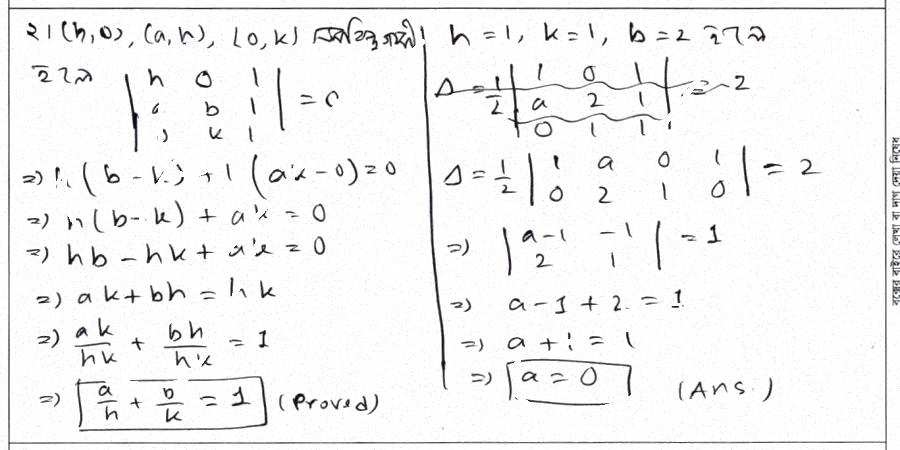 ২। (h,0), (a,b), (0,k) সমবিন্দু গামী।
হলে | h 0 1 | = 0
| a b 1 |
| 0 k 1 |
=> h(b-k) + 1(ak-0)=0
=> h(b-k) + ak = 0
=> hb - hk + ak = 0
=> ak + bh = hk
=> ak/hk + bh/hk = 1
=> a/h + b/k = 1 (Proved)
h=1, k=1, b=2 হলে
Δ = 1/2 | 1 0 1 | = 2
| a 2 1 |
| 0 1 1 |
Δ = 1/2 | 1 a 0 1 | = 2
| 0 2 1 0 |
=> | a-1 -1 | = 1
| 2 1 |
=> a-1+2 = 1
=> a+1 = 1
=> a = 0 (Ans.)
বক্সের বাইরে লেখা বা দাগ দেয়া নিষেধ